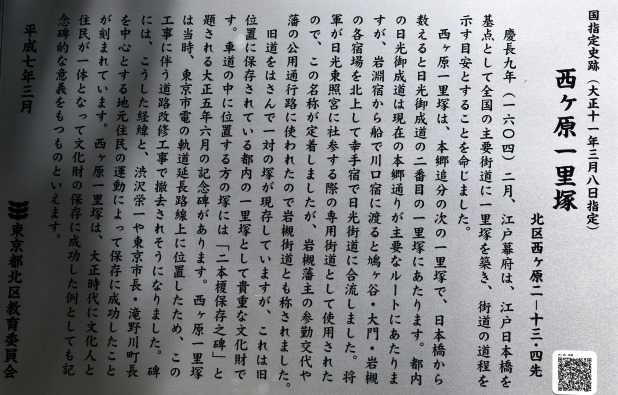 国指定史跡（大正十一年三月八日指定）
西ヶ原一里塚
北区西ヶ原二―十三・四先
慶長九年（一六〇四）二月、江戸幕府は、江戸日本橋を
基点として全国の主要街道に一里塚を築き、街道の道程を
示す目安とすることを命じました。
西ヶ原一里塚は、本郷追分の次の一里塚で、日本橋から
数えると日光御成道の二番目の一里塚にあたります。都内
の日光御成道は現在の本郷通りが主要なルートにあたりま
すが、岩淵宿から船で川口宿に渡ると鳩ヶ谷・大門・岩槻
の各宿場を北上して幸手宿で日光街道に合流しました。将
軍が日光東照宮に社参する際の専用街道として使用された
ので、この名称が定着しましたが、岩槻藩主の参勤交代や
藩の公用通行路に使われたので岩槻街道とも称されました。
旧道をはさんで一対の塚が現存していますが、これは旧
位置に保存されている都内の一里塚として貴重な文化財で
す。車道の中に位置する方の塚には「二本榎保存之碑」と
題される大正五年六月の記念碑があります。西ヶ原一里塚
は当時、東京市電の軌道延長路線上に位置したため、この
工事に伴う道路改修工事で撤去されそうになりました。碑
には、こうした経緯と、渋沢栄一や東京市長・滝野川町長
を中心とする地元住民の運動によって保存に成功したこと
が刻まれています。西ヶ原一里塚は、大正時代に文化人と
住民が一体となって文化財の保存に成功した例としても記
念碑的な意義をもつものといえます。
平成七年三月
東京都北区教育委員会